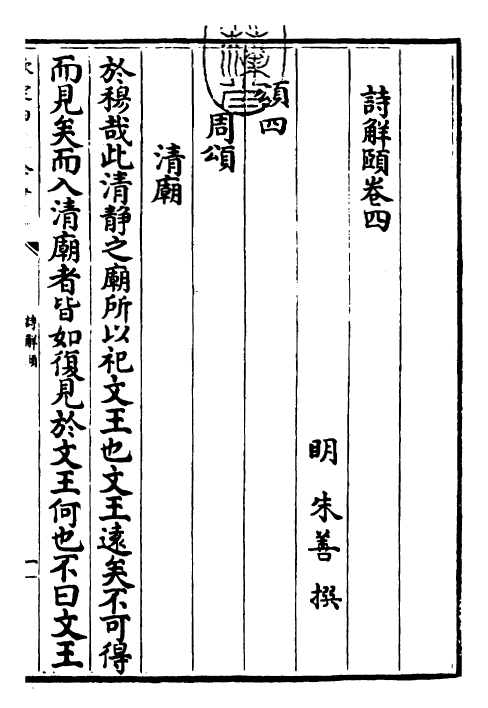 詩解頤卷四
明 朱善 撰
頌四
周頌
清廟
於穆哉此清静之廟所以祀文王也文王遠矣不可得
而見矣而入清廟者皆如復見於文王何也不曰文王
詩解頤
一